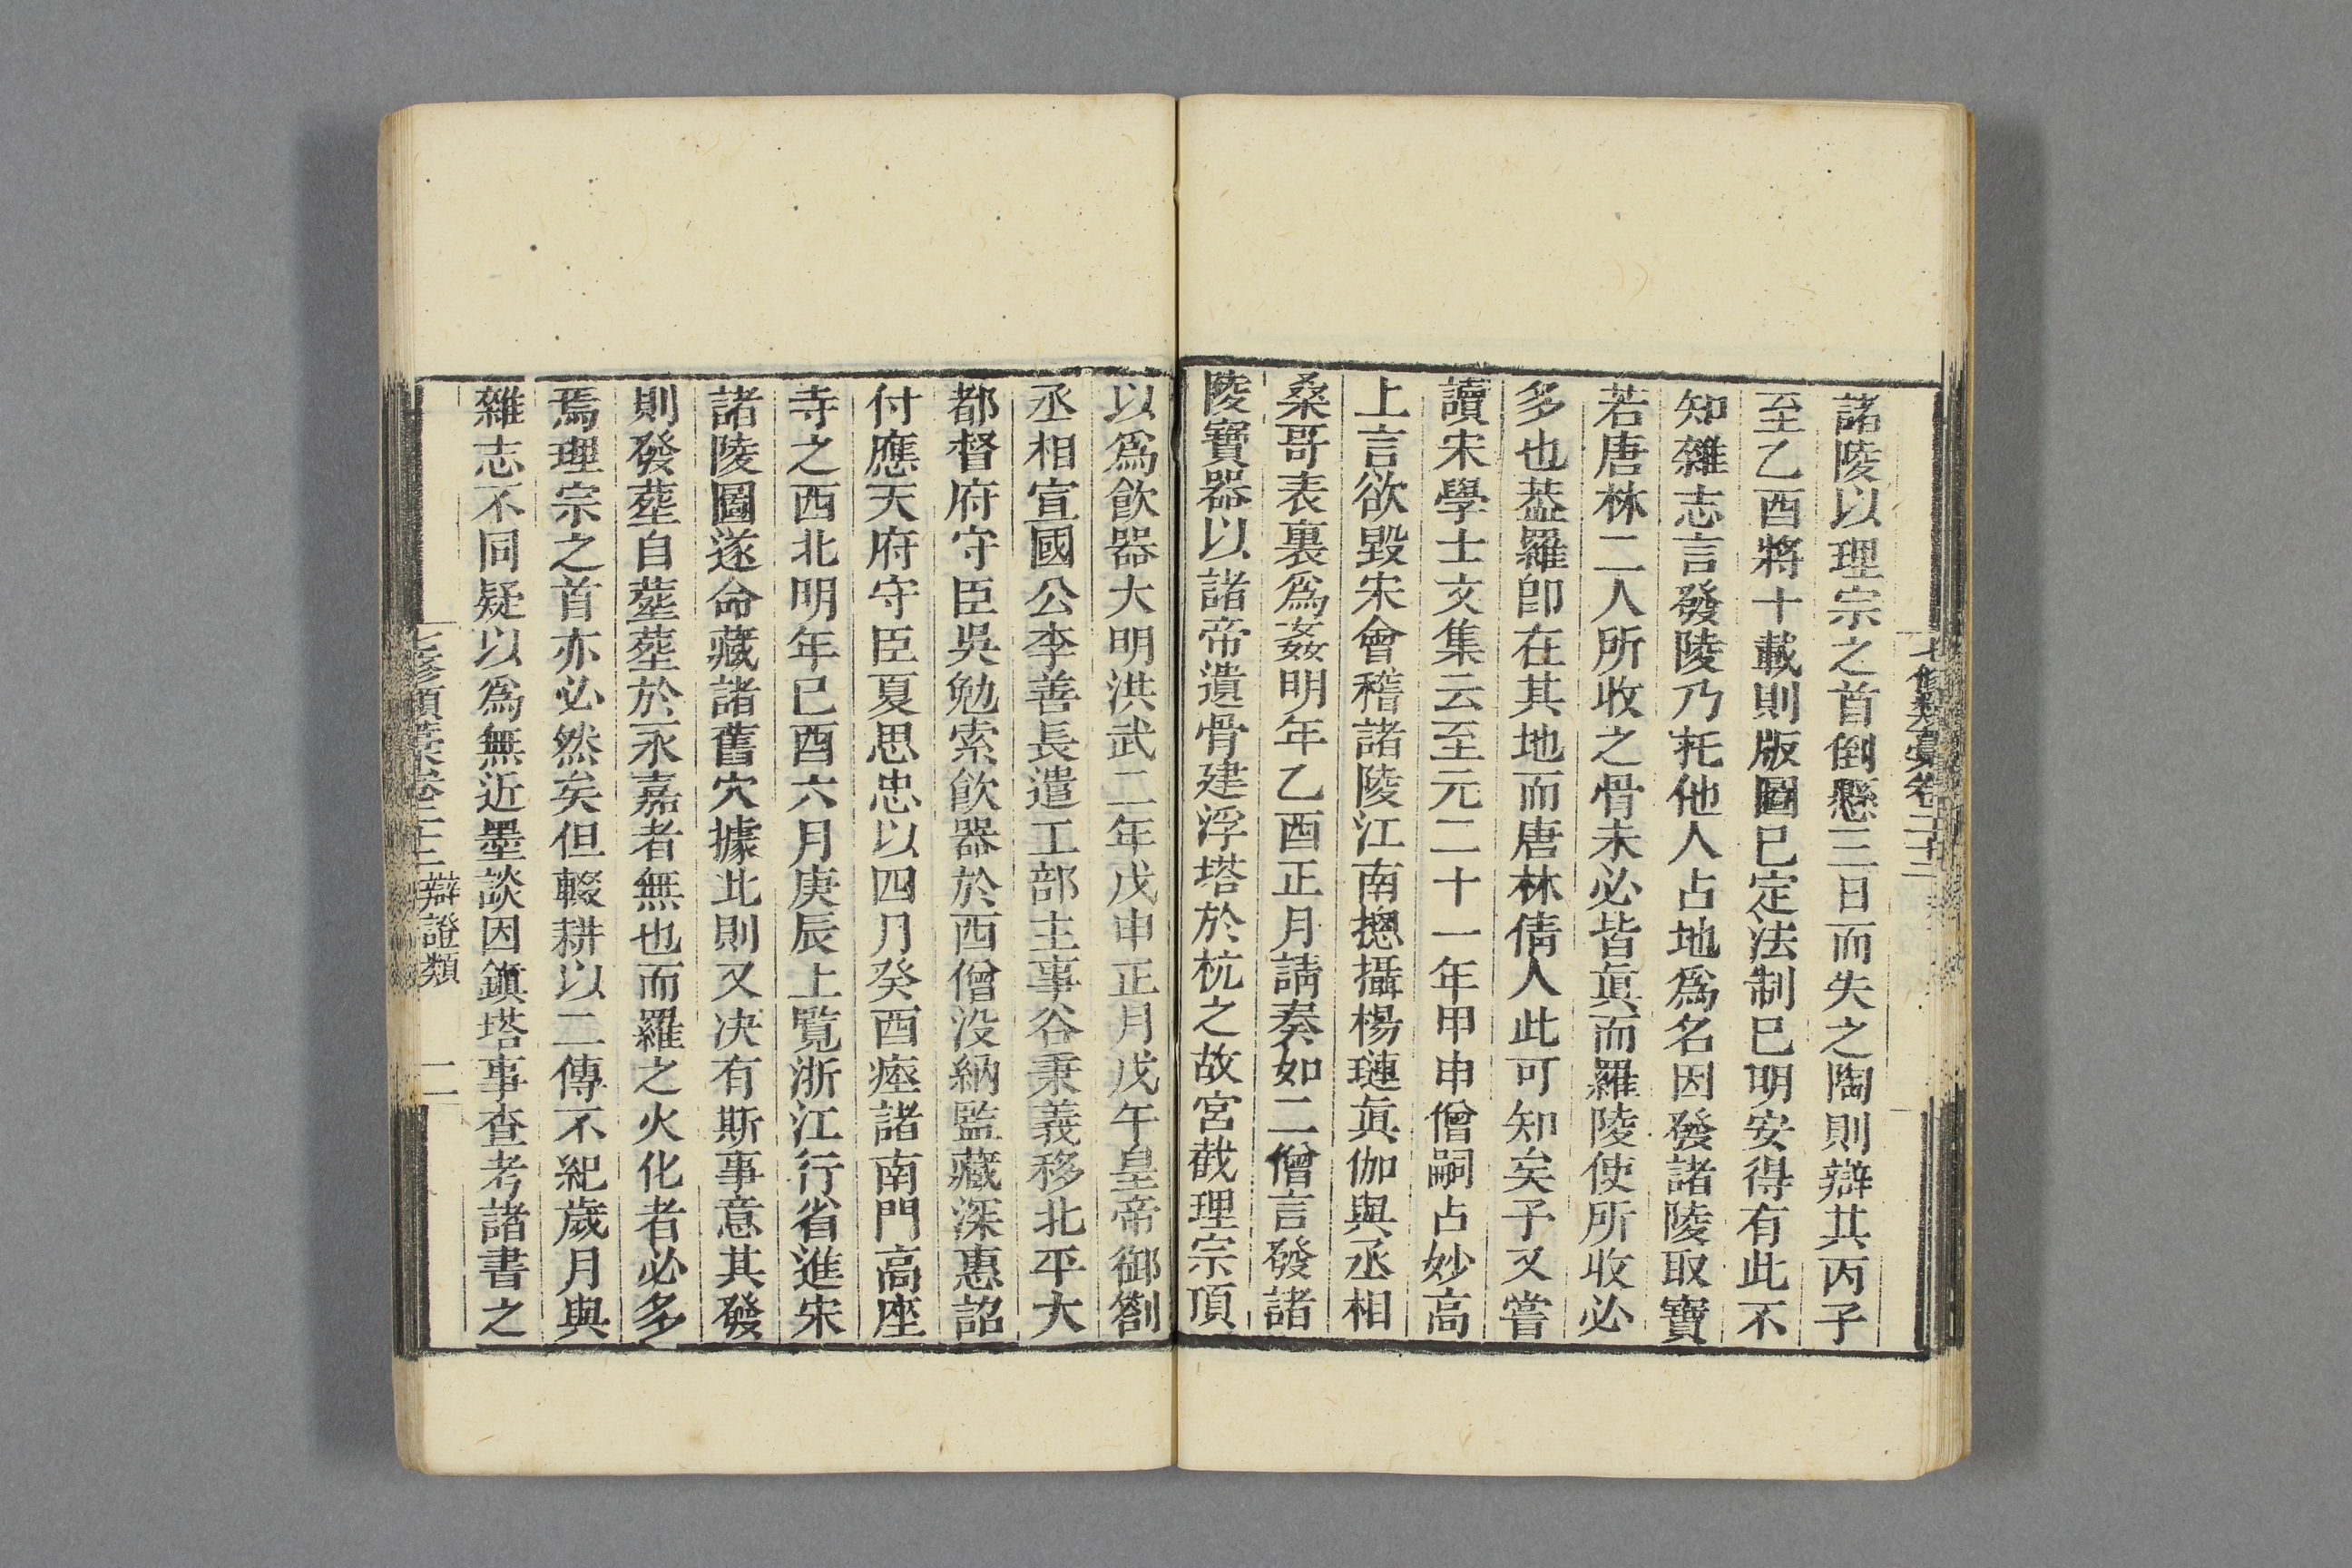 七修類稾卷二十二
諸陵以理宗之首倒懸三日而失之陶則辯其丙子
至乙酉將十載則版圖已定法制已明安得有此不
知雜志言發陵乃托他人占地爲名因發諸陵取寶
若唐林二人所收之骨未必皆眞而羅陵使所收必
多也葢羅卽在其地而唐林倩人此可知矣予又嘗
讀宋學士文集云至元二十一年甲申僧嗣占妙高
上言欲毀宋會稽諸陵江南摠攝楊璉眞伽與丞相
桑哥表裏爲姦明年乙酉正月請奏如二僧言發諸
陵寶器以諸帝遺骨建浮塔於杭之故宮截理宗頂
以爲飮器大明洪武二年戊申正月戊午皇帝御劄
丞相宣國公李善長遣工部主事谷秉義移北平大
都督府守臣吳勉索飮器於西僧没納監藏深惠詔
付應天府守臣夏思忠以四月癸酉瘞諸南門高座
寺之西北明年己酉六月庚辰上覧浙江行省進宋
諸陵圖遂命藏諸舊穴據此則又决有斯事意其發
則發塟自塟塟於永嘉者無也而羅之火化者必多
焉理宗之首亦必然矣但輟耕以二傳不紀歲月與
雜志不同疑以爲無近墨談因鎭塔事查考諸書之
七修類稾卷二十二 辯證類 二